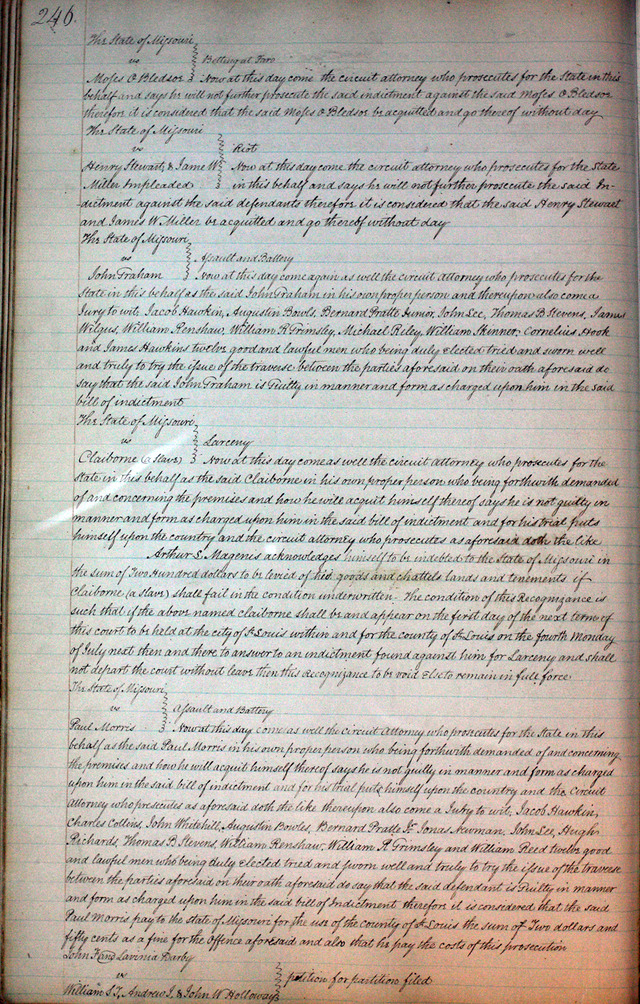 246.
The State of Missouri
vs } Betting at Faro
Moses O Bledsoe } Now at this day come the circuit attorney who prosecutes for the State in this
behalf and says he will not further prosecute the said indictment against the said Moses O Bledsoe
therefore it is considered that the said Moses O Bledsoe be acquitted and go thereof without day
The State of Missouri
vs } Riot
Henry Stewart, & Jame W } Now at this day come the circuit attorney who prosecutes for the State
Miller Impleaded } in this behalf and says he will not further prosecute the said In-
dictment against the said defendants therefore it is considered that the said Henry Stewart
and James W. Miller be acquitted and go thereof without day
The State of Missouri
vs } Assault and Battery
John Graham } Now at this day come again as well the circuit Attorney who prosecutes for the
State in this behalf as the said John Graham in his own proper person and thereupon also come a
Jury to wit, Jacob Hawkin, Augustin Bowls, Bernard Pratte Junior, John Lee, Thomas B Stevens, James
Wilgus, William Renshaw, William R Grimsley, Michael Reley, William Skinner, Cornelius Hook
and James Hawkins twelve good and lawful men who being duly Elected tried and sworn well
and truly to try the issue of the traverse between the parties aforesaid on their oath aforesaid do
say that the said John Graham is Guilty in manner and form as charged upon him in the said
bill of indictment
The State of Missouri
vs } Larceny
Claiborne (a slave) } Now at this day come as well the circuit attorney who prosecutes for the
State in this behalf as the said Claiborne in his own proper person who being forthwith demanded
of and concerning the premises and how he will acquit himself thereof says he is not guilty in
manner and form as charged upon him in the said bill of indictment and for his trial puts
himself upon the country and the circuit attorney who prosecutes as aforesaid doth the like
Arthur L Magenis acknowledges himself to be indebted to the State of Missouri in
the sum of Two Hundred dollars to be levied of his goods and chattels lands and tenements if
Claiborne (a slave) shall fail in the condition underwritten. The condition of this Recognizance is
such that if the above named Claiborne shall be and appear on the first day of the next term of
this court to be held at the city of St Louis within and for the county of St Louis on the fourth Monday
of July next then and there to answer to an indictment found against him for Larceny and shall
not depart the court without leave then this Recognizance to be void Else to remain in full force
The State of Missouri
vs } Assault and Battery
Paul Morris } Now at this day come as well the circuit Attorney who prosecutes for the State in this
behalf as the said Paul Morris in his own proper person who being forthwith demanded of and concerning
the premises and how he will acquit himself thereof says he is not guilty in manner and form as charged
upon him in the said bill of indictment and for his trial puts himself upon the country and the Circuit
Attorney who prosecutes as aforesaid doth the like thereupon also come a Jury to wit, Jacob Hawkin,
Charles Collins, John Whitehill, Augustin Bowles, Bernard Pratte Jr Jonas Newman, John Lee, Hugh
Richards Thomas B Stevens, William Renshaw, William R Grimsley and William Reed twelve good
and lawful men who being duly Elected tried and sworn well and truly to try the issue of the traverse
between the parties aforesaid on their oath aforesaid do say that the said defendant is Guilty in manner
and form as charged upon him in the said bill of Indictment therefore it is considered that the said
Paul Morris pay to the state of Missouri for the use of the county of St Louis the sum of Two dollars and
fifty cents as a fine for the offence aforesaid and also that he pay the costs of this prosecution
John F and Lavinia Darby
vs } petition for partition filed
William S.T, Andrew J. & John W Holloway